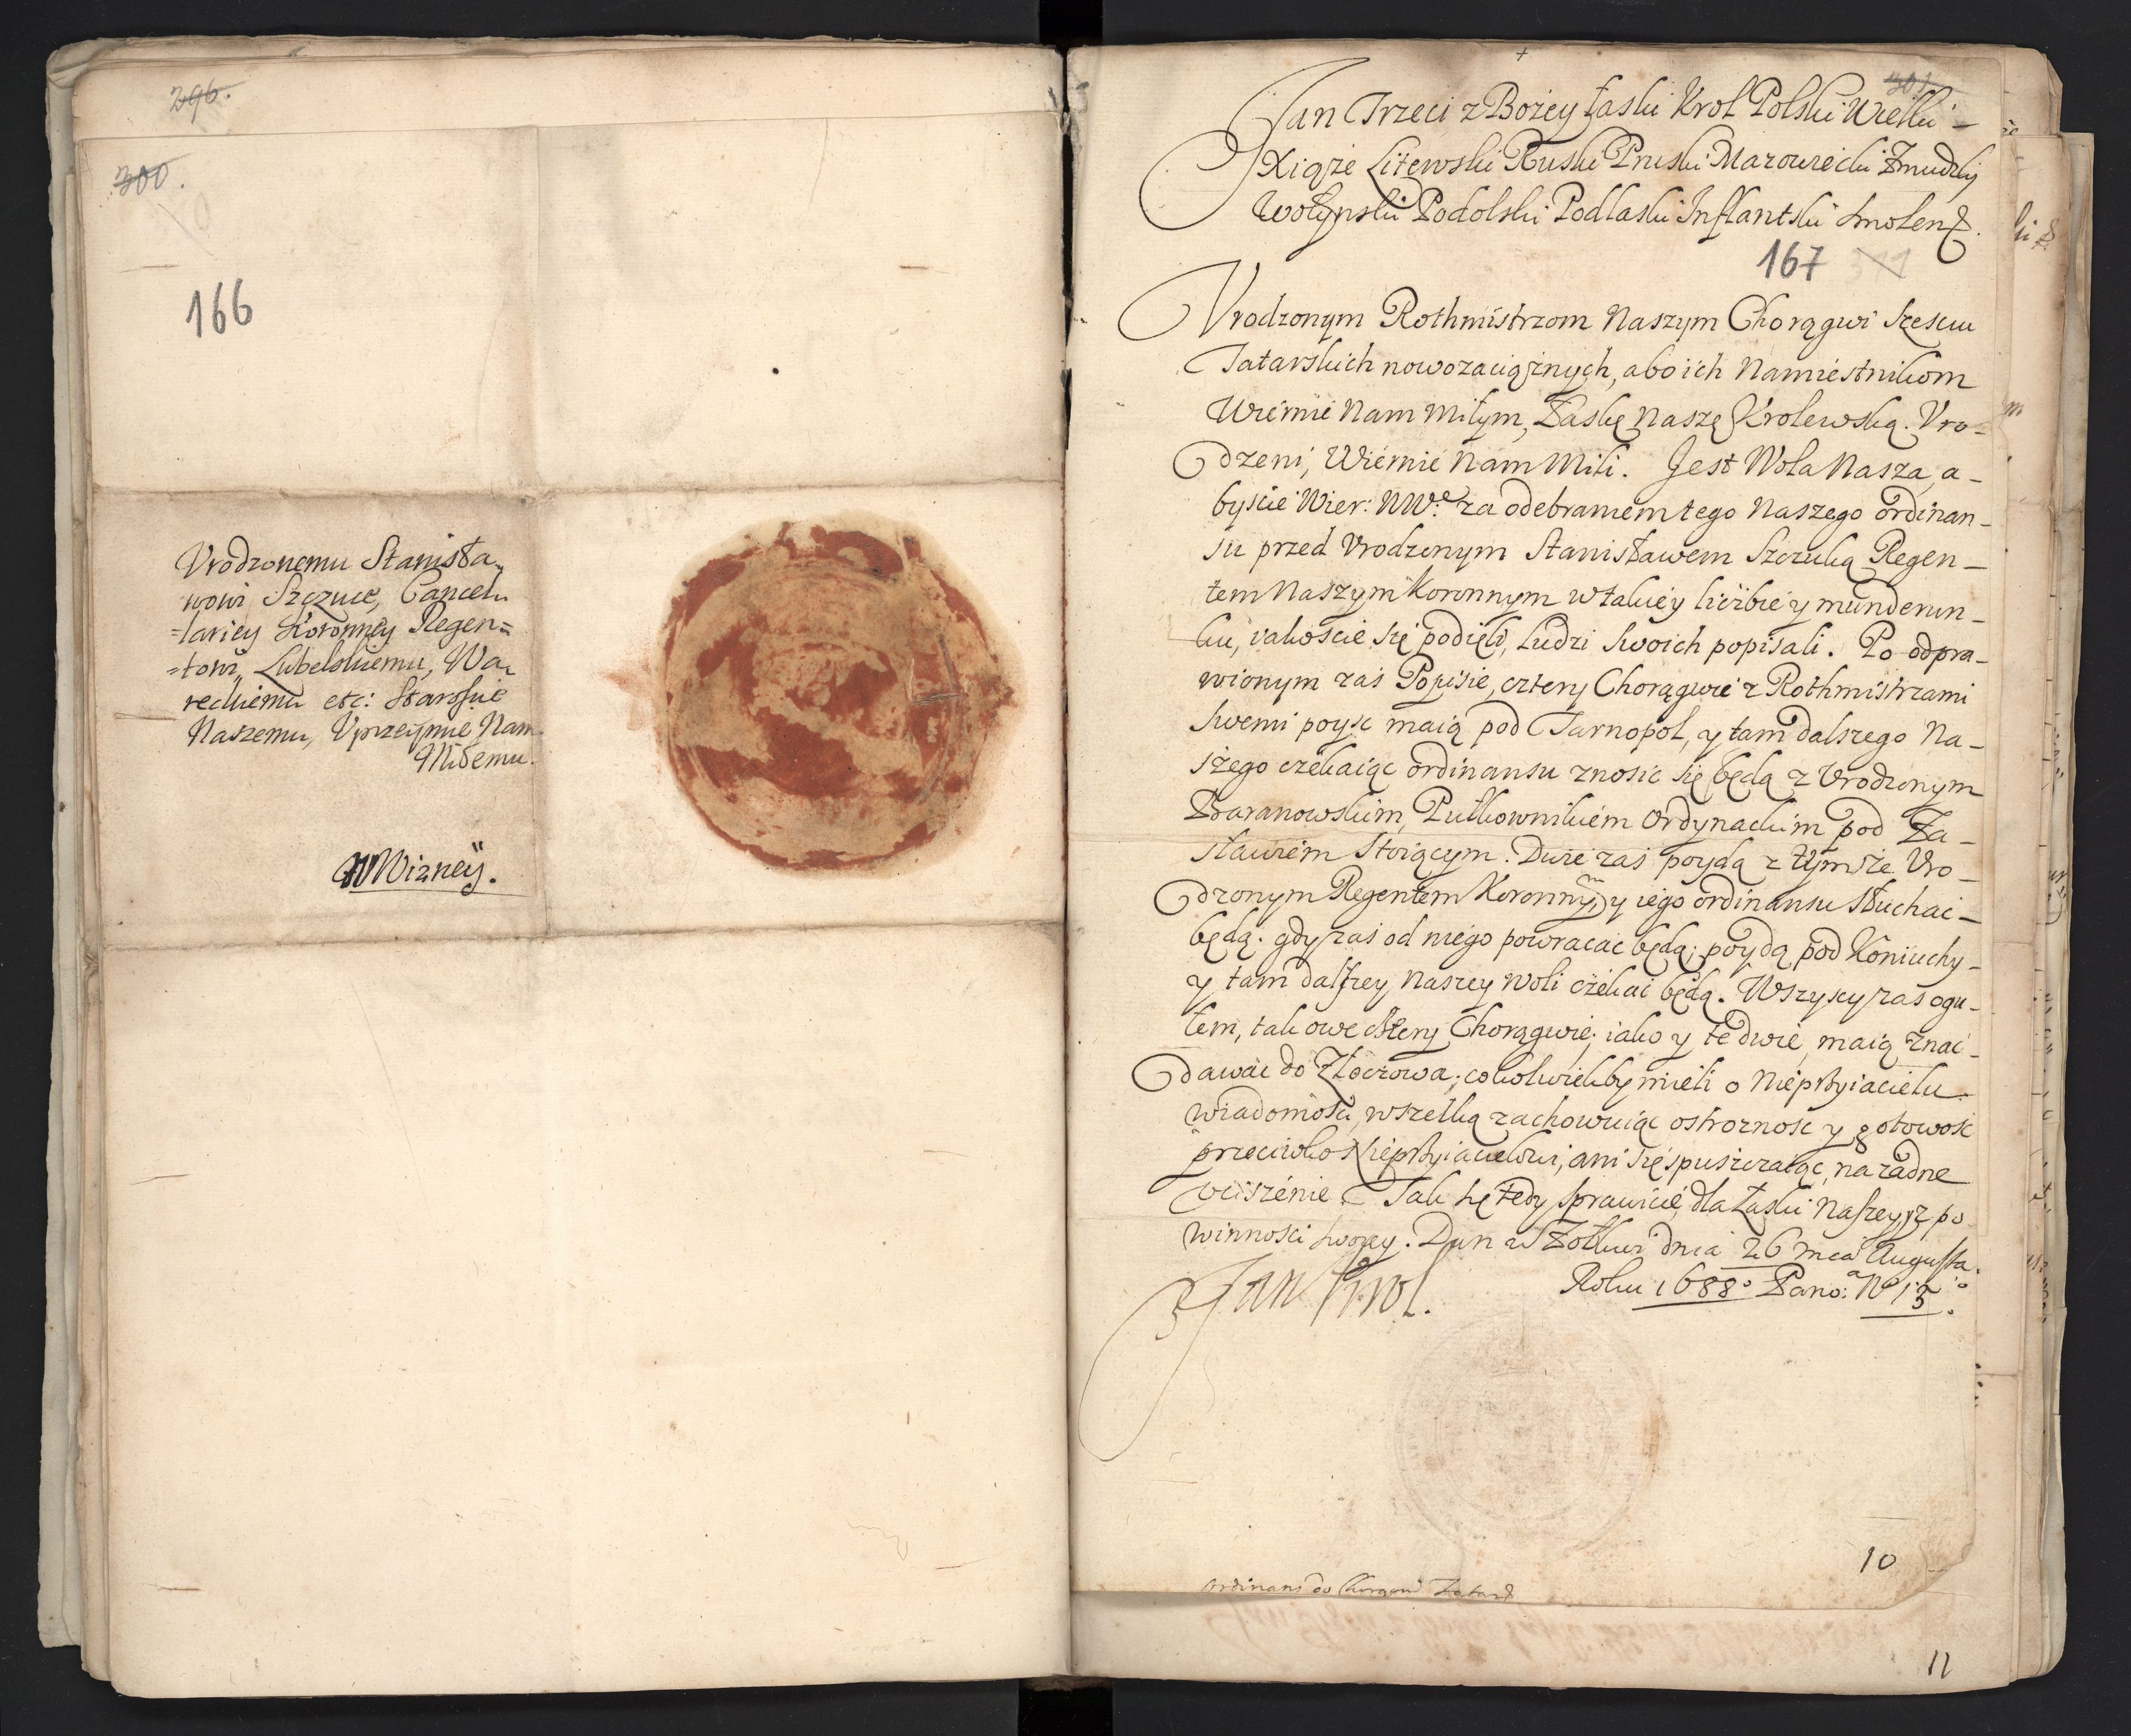 296.
300.
166
Vrodzonemu Stanisła„
wowi Szczuce, Cancel„
=lariey Koronney Regen=
=towi, Lubelskiemu, Wa„
reckiemu etc: Starosćie
Naszemu, Vprzeymie Nam
Miłemu.
W Wizney.
301
Jan Trzeci z Bozey łaski Krol Polski Wielki –
Xiąze Litewski Ruski Pruski Mazowiecki Zmudzki
Wołynski Podolski Podlaski Inflantski Smolen.
167
Vrodzonym Rothmistrzom Naszym Chorągwi szesciu
Tatarskich nowozaciąznych, abo ich Namiestnikom
Wiernie Nam miłym, Łaskę Naszę Krolewską. Vro–
dzeni, Wiernie Nam Mili. Jest Wola Nasza, a–
byscie Wier: NWe. za odebraniem tego Naszego ordinan–
su przed Vrodzonym Stanisławem Szczuką Regen–
tem Naszym Koronnym w takiey liczbie y munderun–
ku, iakoscie się podieli, ludzi swoich popisali. Po odpra–
wionym zas Popisie, cztery Chorągwie z Rothmistrzami
swemi poysc maią pod Tarnopol, y tam dalszego Na–
szego czekaiąc ordinansu znosic się będą z Vrodzonym
Baranowskim, Pułkownikiem Ordynackim pod Za–
sławiem stoiącym. Dwie zas poydą z tymze Vro–
dzonym Regentem Koronnym y iego ordinansu słuchac–
będą: gdy zas od niego powracac będą; poydą pod Koniuchy–
y tam dalszey Naszey woli czekac będą. Wszyscy zas ogu–
łem, tak owe cztery Chorągwie; iako y te dwie, maią znac–
dawac do Złoczowa; cokolwiekby mieli o Nieprzyiacielu
wiadomosci, wszelką zachowuiąc ostroznosc y gotowosc
przeciwko Nieprzyiacielowi, ani się spuszczaiąc, na zadne
uciszenie. Tak się tedy sprawicie, dla Łaski Naszey, y z po
winnosci swoiey. Dan w Zołkwi dnia 26 mca Augusta.
Roku 1688° Pano: N°
Jan Krol.
10
Ordinans do Chorągwi Tatarsk
11